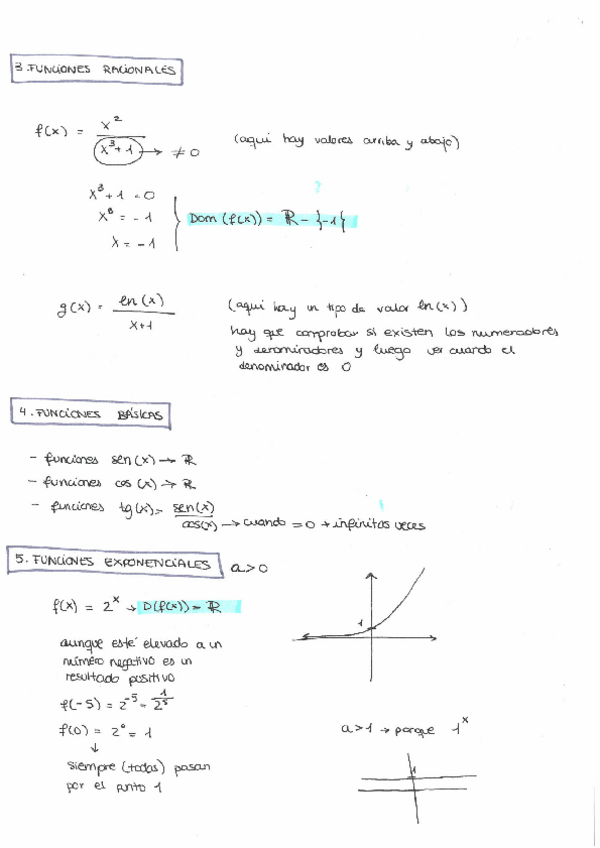 3. FUNCIONES RACIONALES
f(x) = x² / (x³+1) → ≠ 0 (aqui hay valores arriba y abajo)
x³+1 = 0
x³ = -1
x = -1
Dom (f(x)) = ℝ - {-1}
g(x) = ln(x) / x+1 (aqui hay un tipo de valor ln(x))
hay que comprobar si existen los numeradores
y denominadores y luego ver cuando el
denominador es 0
4. FUNCIONES BÁSICAS
- funciones sen(x) → ℝ
- funciones cos(x) → ℝ
- funciones tg(x) = sen(x) / cos(x) → cuando = 0 → infinitas veces
5. FUNCIONES EXPONENCIALES a>0
f(x) = 2^x → D(f(x)) = ℝ
1
aunque esté elevado a un
número negativo es un
resultado positivo
f(-5) = 2^-5 = 1/2^5
f(0) = 2^0 = 1
↓
siempre (todas) pasan
por el punto 1
a>1 → porque 1^x
1